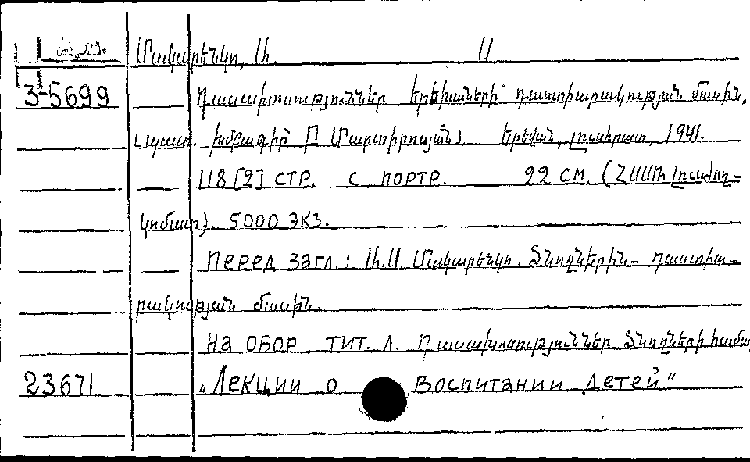 Մակարենկո, Ա. Ս
3-5699 Դասախոսություններ երեխաների դաստիարակության մասին,
խմբագիր Մարտիրոսյան). Երևան, Լուսհրատ, 1941.
118 [2] стр. с портр. 22 см. (ՀՍՍՌ Լուսժող-
կոմատ) 5000 экз.
Перед загл.: Ա.Ս Մակարենկո. Ծնողներին- դաստիա-
րակության մասին.
На обор тит. л. Դասախոսություններ ծնողների համար
23671 „Лекции о воспитании детей"